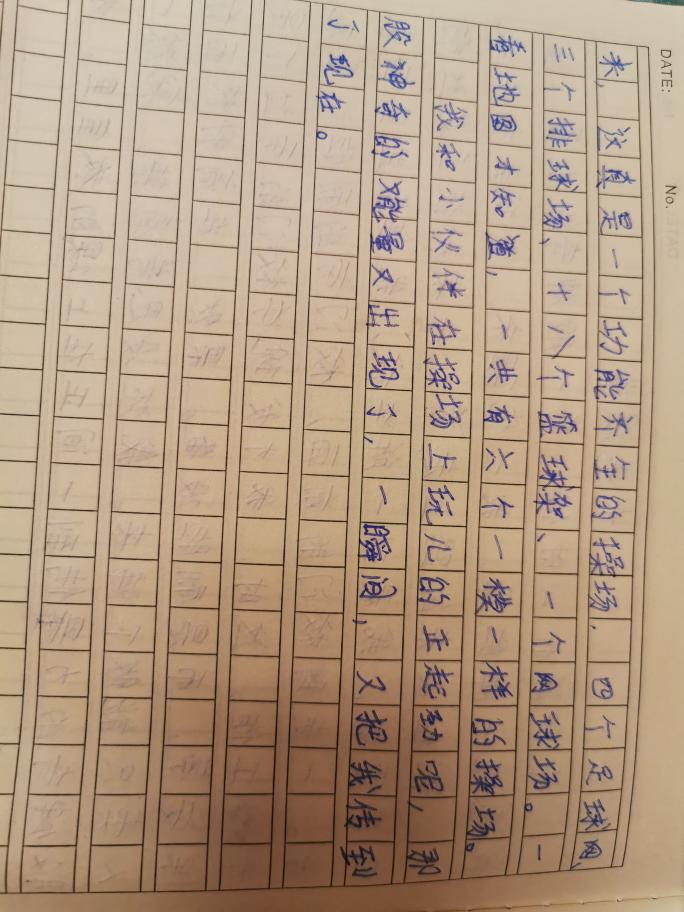 DATE:
No.
来，这真是一个功能齐全的操场，四个足球网、
三个排球场、十八个篮球架、一个网球场。一
看地图才知道，一共有六个一模一样的操场。
我和小伙伴在操场上玩儿的正起动呢，那
股神奇的能量又出现了，一瞬间，又把我传到
了现在。